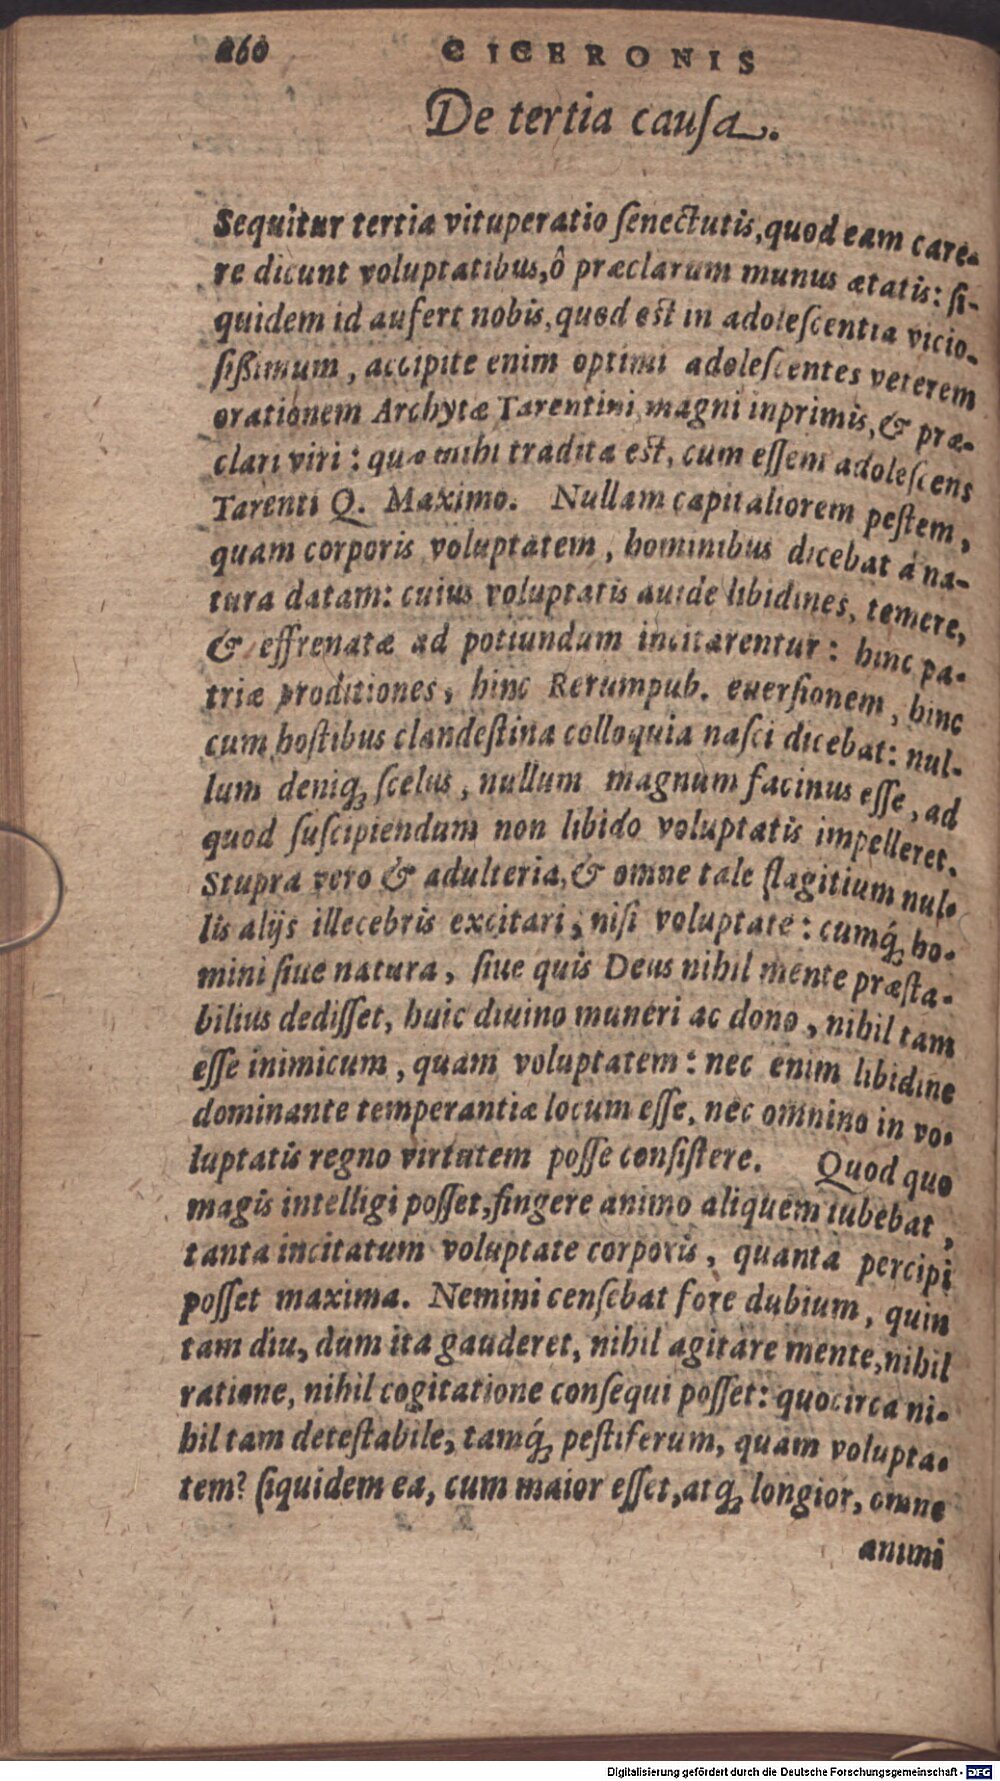 260 CICERONIS
De tertia causa.
Sequitur tertia vituperatio ſenectutis, quod eam care-
re dicunt voluptatibus, ô præclarum munus ætatis: ſi-
quidem id aufert nobis, quod est in adoleſcentia vicio-
ſiſsimum, accipite enim optimi adoleſcentes veterem
orationem Archytæ Tarentini magni inprimis, & præ-
clari viri: quæ mihi tradita est, cum eſſem adoleſcens
Tarenti Q. Maximo. Nullam capitaliorem peſtem,
quam corporis voluptatem, hominibus dicebat à na-
tura datam: cuius voluptatis auide libidines, temere,
& effrenatæ ad potiundum incitarentur: hinc pa-
triæ proditiones, hinc Rerumpub. euerſionem, hinc
cum hoſtibus clandeſtina colloquia naſci dicebat: nul-
lum deniq́; ſcelus, nullum magnum facinus eſſe, ad
quod ſuſcipiendum non libido voluptatis impelleret.
Stupra vero & adulteria, & omne tale flagitium nul-
lis alijs illecebris excitari, niſi voluptate: cumq́; ho-
mini ſiue natura, ſiue quis Deus nihil mente præſta-
bilius dediſſet, huic diuino muneri ac dono, nihil tam
eſſe inimicum, quam voluptatem: nec enim libidine
dominante temperantiæ locum eſſe, nec omnino in vo-
luptatis regno virtutem poſſe conſiſtere. Quod quo
magis intelligi poſſet, fingere animo aliquem iubebat,
tanta incitatum voluptate corporis, quanta percipi
poſſet maxima. Nemini cenſebat fore dubium, quin
tam diu, dum ita gauderet, nihil agitare mente, nihil
ratione, nihil cogitatione conſequi poſſet: quocirca ni-
hil tam deteſtabile, tamq́; peſtiferum, quam volupta-
tem? ſiquidem ea, cum maior eſſet, atq́; longior, omne
animi
Digitalisierung gefördert durch die Deutsche Forschungsgemeinschaft - DFG